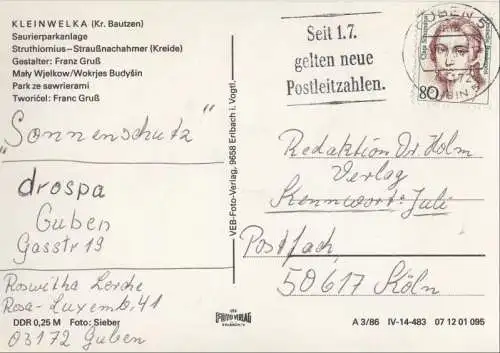 KLEINWELKA (Kr. Bautzen)
Saurierparkanlage
Struthiornius–Straußnachahmer (Kreide)
Gestalter: Franz Gruß
Mały Wjelkow/Wokrjes Budyšin
Park ze sawrierami
Tworićel: Franc Gruß
"Sonnenschutz"
drospa
Guben
Gasstr 19
Roswitha Lerche
Rosa-Luxemb. 41
03172 Guben
DDR 0,25 M Foto: Sieber
VEB-Foto-Verlag, 9658 Erlbach i. Vogtl.
FOTO VERLAG
Seit 1.7.
gelten neue
Postleitzahlen.
GUBEN 5
80
Redaktion Dr. Holm
Verlag
Kennwort: Juli
Postfach
50617 Köln
A 3/86 IV-14-483 07 12 01 095